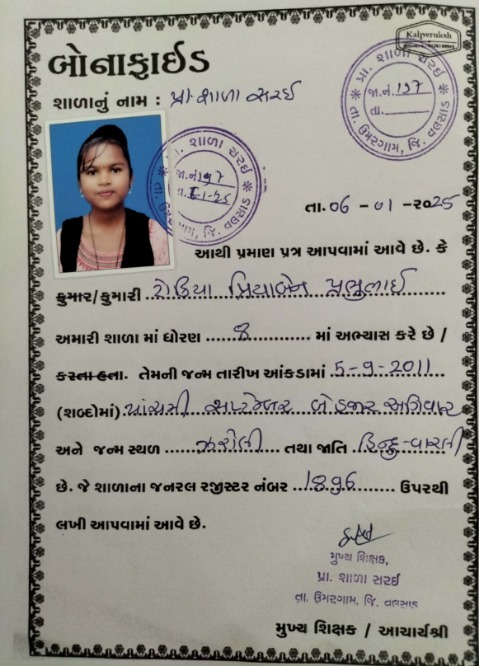 Kalpvruksh
બોનાફાઈડ
શાળાનું નામ : પ્રા. શાળા સરઈ
પ્રા. શાળા સરઈ
જા.નં. 197
તા.
તા. ઉમરગામ, જિ. વલસાડ
પ્રા. શાળા સરઈ
જા.નં 197
તા. 6-1-25
તા. ઉમરગામ, જિ. વલસાડ
તા. 06 - 01 - ૨૦25
આથી પ્રમાણ પત્ર આપવામાં આવે છે. કે
કુમાર/કુમારી પ્રિયાબેન
અમારી શાળા માં ધોરણ 8 માં અભ્યાસ કરે છે /
કરતા હતા. તેમની જન્મ તારીખ આંકડામાં 5-9-2011
(શબ્દોમાં) પાંચમી સપ્ટેમ્બર બે હજાર અગિયાર
અને જન્મ સ્થળ ઝરોલી તથા જાતિ હિન્દુ-વારલી
છે. જે શાળાના જનરલ રજીસ્ટર નંબર 1896 ઉપરથી
લખી આપવામાં આવે છે.
મુખ્ય શિક્ષક,
પ્રા. શાળા સરઈ
તા. ઉમરગામ, જિ. વલસાડ
મુખ્ય શિક્ષક / આચાર્યશ્રી